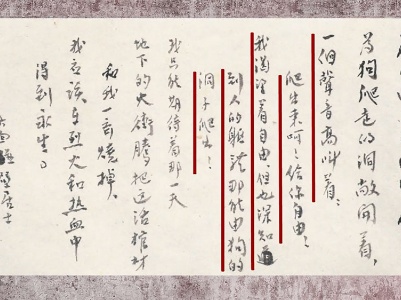 為狗爬走的洞敞開着，
一個聲音高叫着：
爬出来呵！给你自由！
我渴望着自由，但也深知道
到人的軀體那能由狗的
洞子爬出！
我只能期待着那一天
地下的火衝騰，把这活棺材
和我一齊燒掉，
我应该在烈火和热血中
得到永生。
面碰壁居士